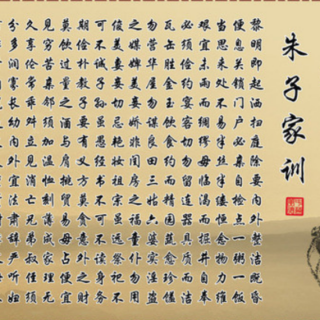 朱子家训
黎明即起洒扫庭除要内外整洁既昏
便息关锁门户必亲自检点一粥一饭
当思来处不易半丝半缕恒念物力维
艰宜未雨而绸缪毋临渴而掘井自奉
必须俭约宴客切勿留连器具质而洁
瓦缶胜金玉饮食约而精园蔬愈珍馐
勿营华屋勿谋良田三姑六婆实淫盗
之媒婢美妾娇非闺房之福奴仆勿用
俊美妻妾切忌艳妆祖宗虽远祭祀不
可不诚子孙虽愚经书不可不读居身务
期俭朴教子要有义方莫贪意外之财
莫饮过量之酒与肩挑贸易毋占便宜
见穷苦亲邻须加温恤刻薄成家理无
久享伦常乖舛立见消亡兄弟叔侄须
分多润寡长幼内外宜法肃辞严听妇